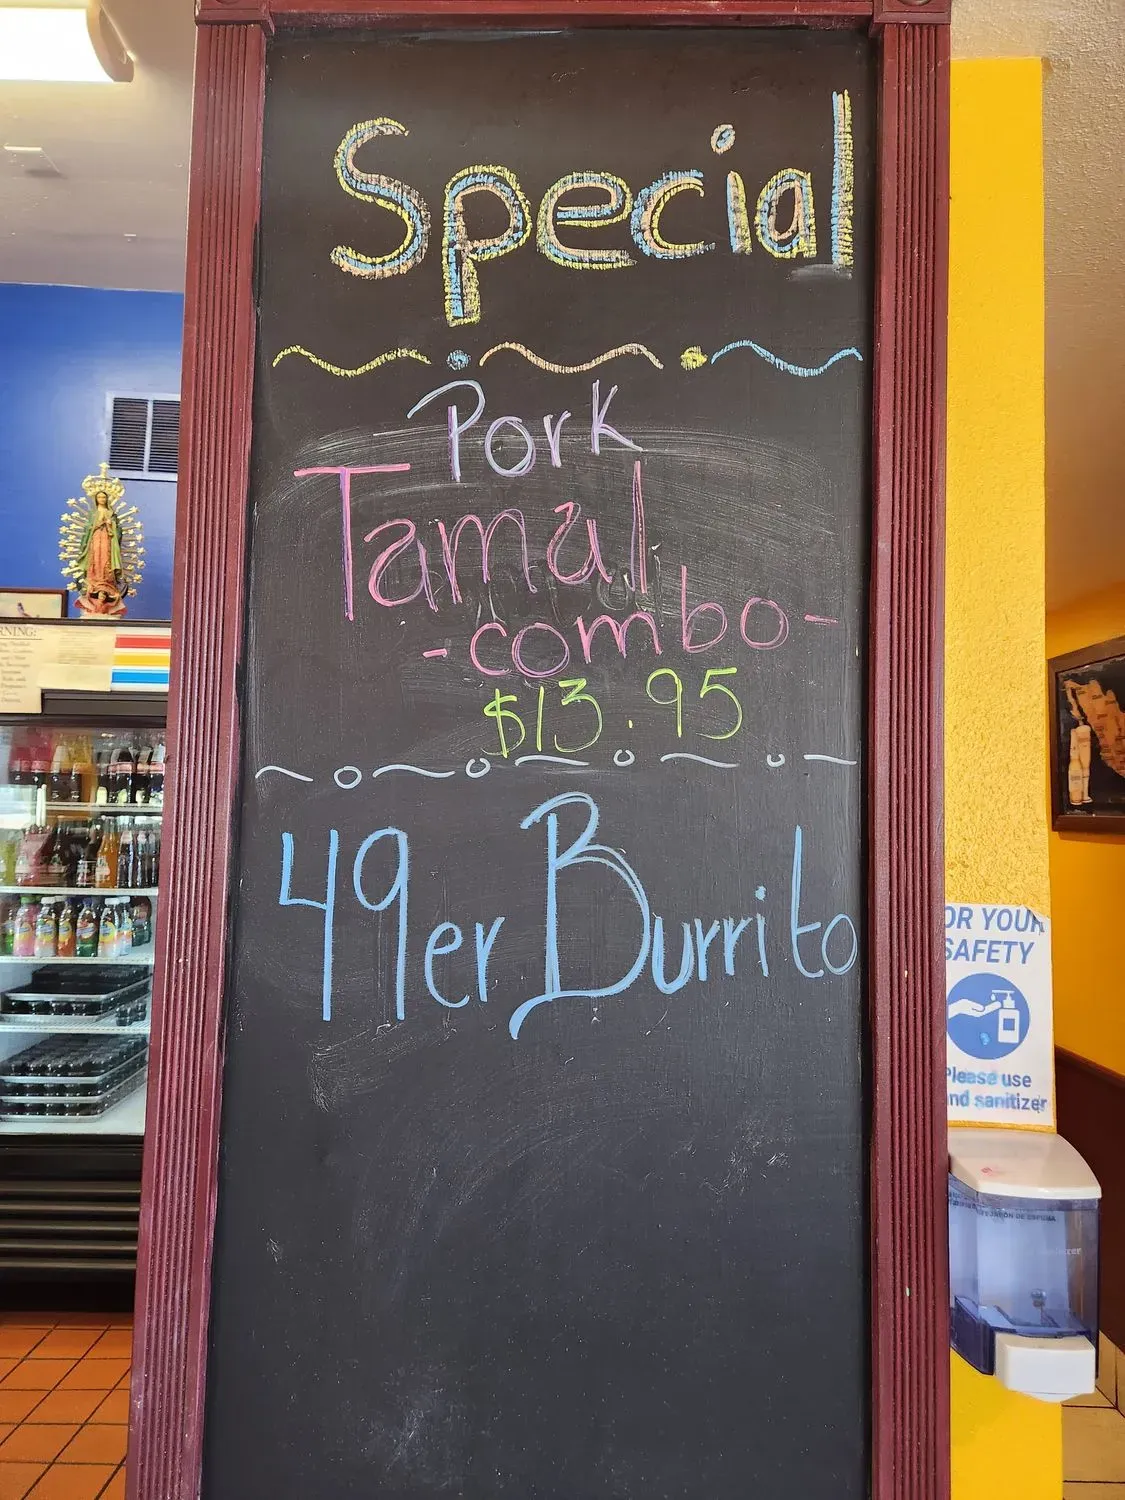 Special
Pork
Tamal
-combo-
$13.95
49er Burrito
RNING:
OR YOUR
SAFETY
Please use
and sanitizer
JABON DE ESPUMA